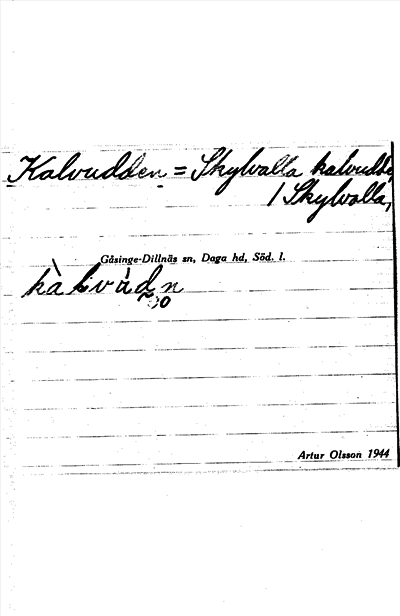 Kalvudden = Skylvalla kalvudde
/ Skylvalla,
Gåsinge-Dillnäs sn, Daga hd, Söd. l.
Artur Olsson 1944